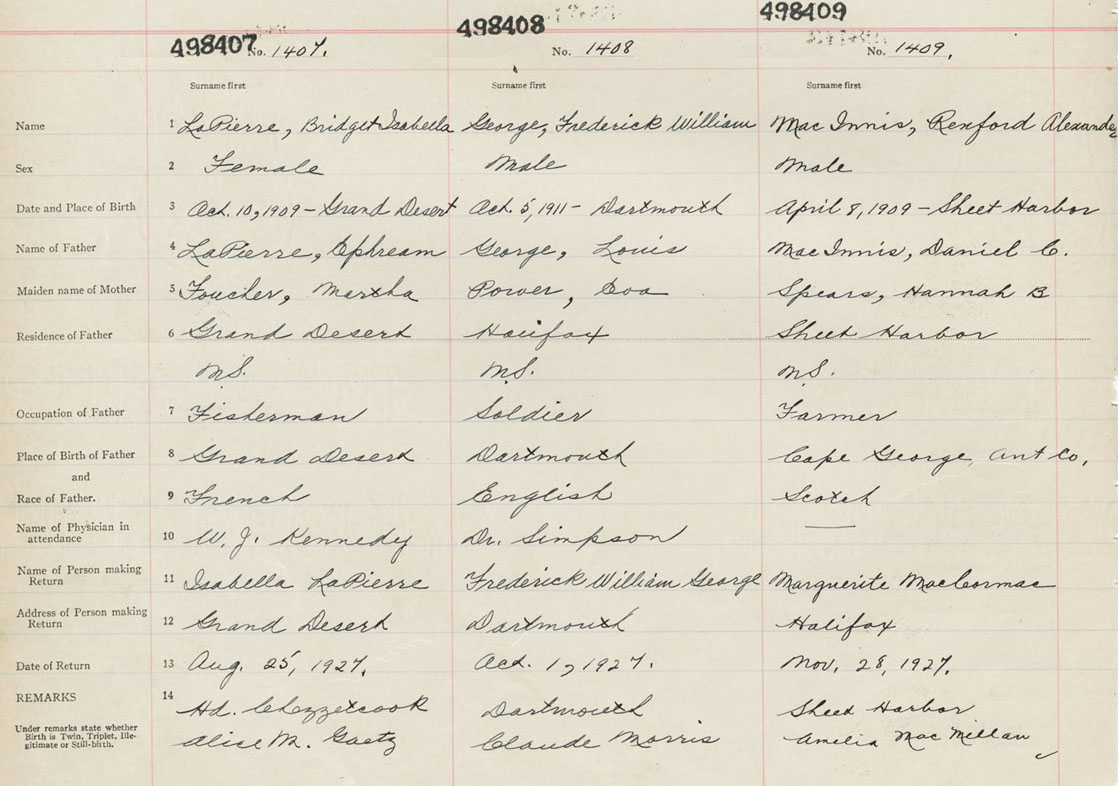 498407 498408 498409
No. 1407. No. 1408 No. 1409.
Surname first Surname first Surname first
Name 1 LaPierre, Bridget Isabella George, Frederick William Mac Innis, Renford Alexander
Sex 2 Female Male Male
Date and Place of Birth 3 Oct. 10, 1909 - Grand Desert Oct. 5, 1911 - Dartmouth April 8, 1909 - Sheet Harbor
Name of Father 4 LaPierre, Ephream George, Louis MacInnis, Daniel C.
Maiden name of Mother 5 Foucher, Martha Power, Eva Spears, Hannah B
Residence of Father 6 Grand Desert Halifax Sheet Harbor
N.S. N.S. N.S.
Occupation of Father 7 Fisherman Soldier Farmer
Place of Birth of Father 8 Grand Desert Dartmouth Cape George, Ant Co,
and
Race of Father. 9 French English Scotch
Name of Physician in
attendance 10 W. J. Kennedy Dr. Simpson
Name of Person making
Return 11 Isabella LaPierre Frederick William George Marguerite MacCormac
Address of Person making
Return 12 Grand Desert Dartmouth Halifax
Date of Return 13 Aug. 25, 1927. Oct. 1, 1927. Nov. 28, 1927.
REMARKS 14 Hd. Chezzetcook Dartmouth Sheet Harbor
Under remarks state whether
Birth is Twin, Triplet, Ille-
gitimate or Still-birth.
Alice M. Gaetz Claude Morris Amelia MacMillan